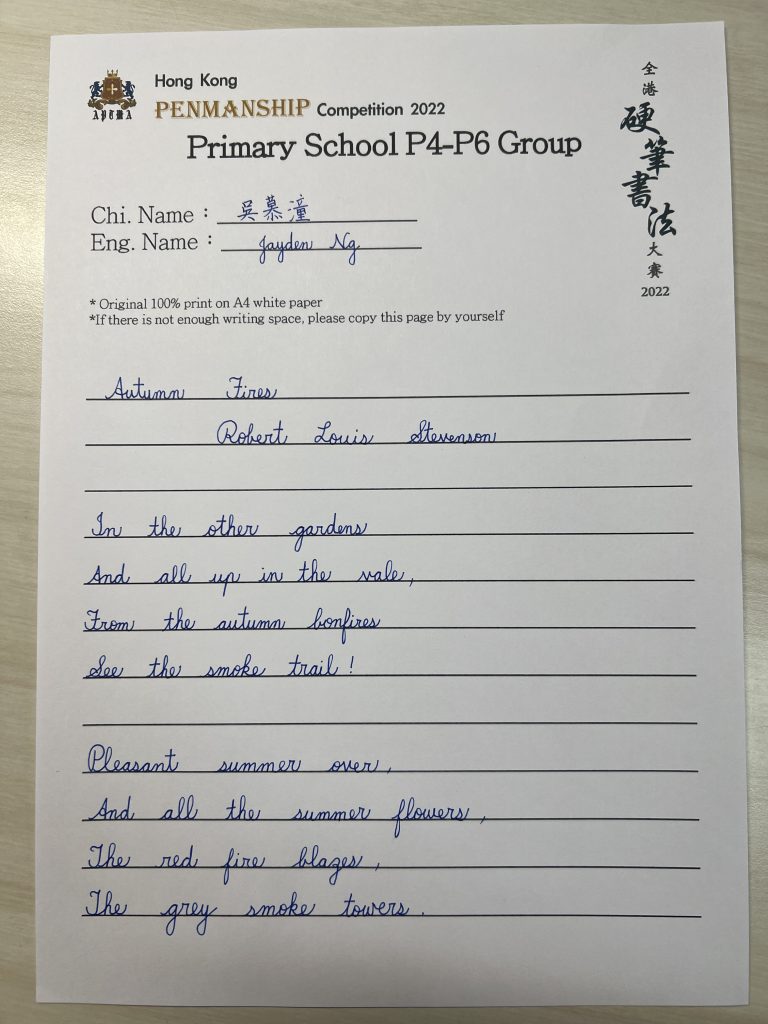 Hong Kong
PENMANSHIP Competition 2022
Primary School P4-P6 Group
APTMA
全港硬筆書法大賽
2022
Chi. Name : 吳慕潼
Eng. Name : Jayden Ng
* Original 100% print on A4 white paper
*If there is not enough writing space, please copy this page by yourself
Autumn Fires
Robert Louis Stevenson
In the other gardens
And all up in the vale,
From the autumn bonfires
See the smoke trail!
Pleasant summer over,
And all the summer flowers,
The red fire blazes,
The grey smoke towers.